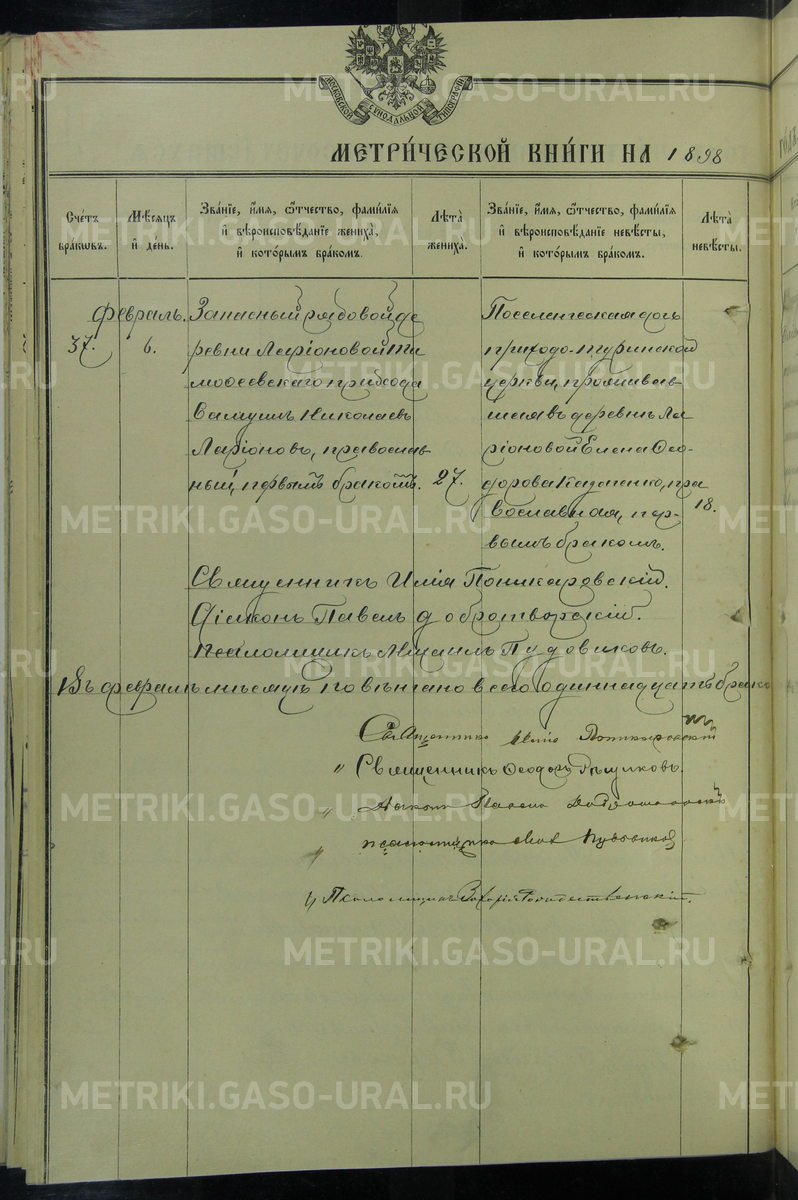 МОСКОВСКОЙ СѴНОДАЛЬНОЙ ТИПОГРАФІИ
МЕТРИ́ЧЕСКОЙ КНИ́ГИ НА 1898
Сче́тъ бра́кѡвъ.
Мѣ́сѧцъ и҆ де́нь.
Зва́нїе, и҆́мѧ, ѻ҆́тчество, фами́лїѧ и҆ вѣроисповѣ́данїе жениха̀, и҆ кото́рымъ бра́комъ.
Лѣта̀ жениха̀.
Зва́нїе, и҆́мѧ, ѻ҆́тчество, фами́лїѧ и҆ вѣроисповѣ́данїе невѣ́сты, и҆ кото́рымъ бра́комъ.
Лѣта̀ невѣ́сты.
Февраль.
37.
6.
Запасный рядовой де
ревни Ларіоновой Ти
мофеевскаго прихода
Самуилъ Николаевъ
Ларіоновъ, православ
ный, первымъ бракомъ.
27.
Поселенческая дочь
приходо-Туринской
церкви, проживав-
шая въ деревнѣ Ла
ріоновой Елена Ѳео-
дорова Казаченко, пра
вославная, пер-
вымъ бракомъ.
18.
Священникъ Илія Поникаровскій.
Діаконъ Павелъ Добротворскій.
Псаломщикъ Михаилъ Пудовиковъ.
Въ февралѣ мѣсяцѣ повѣнчано всего одиннадцать брако
въ
Священникъ Илія Поникаровскій
" Священникъ Ѳеодоръ
" Діаконъ Павелъ Добротворскій
" псаломщикъ Мих Пудовиков
" Псаломщикъ Рождественскій.
METRIKI.GASO-URAL.RU